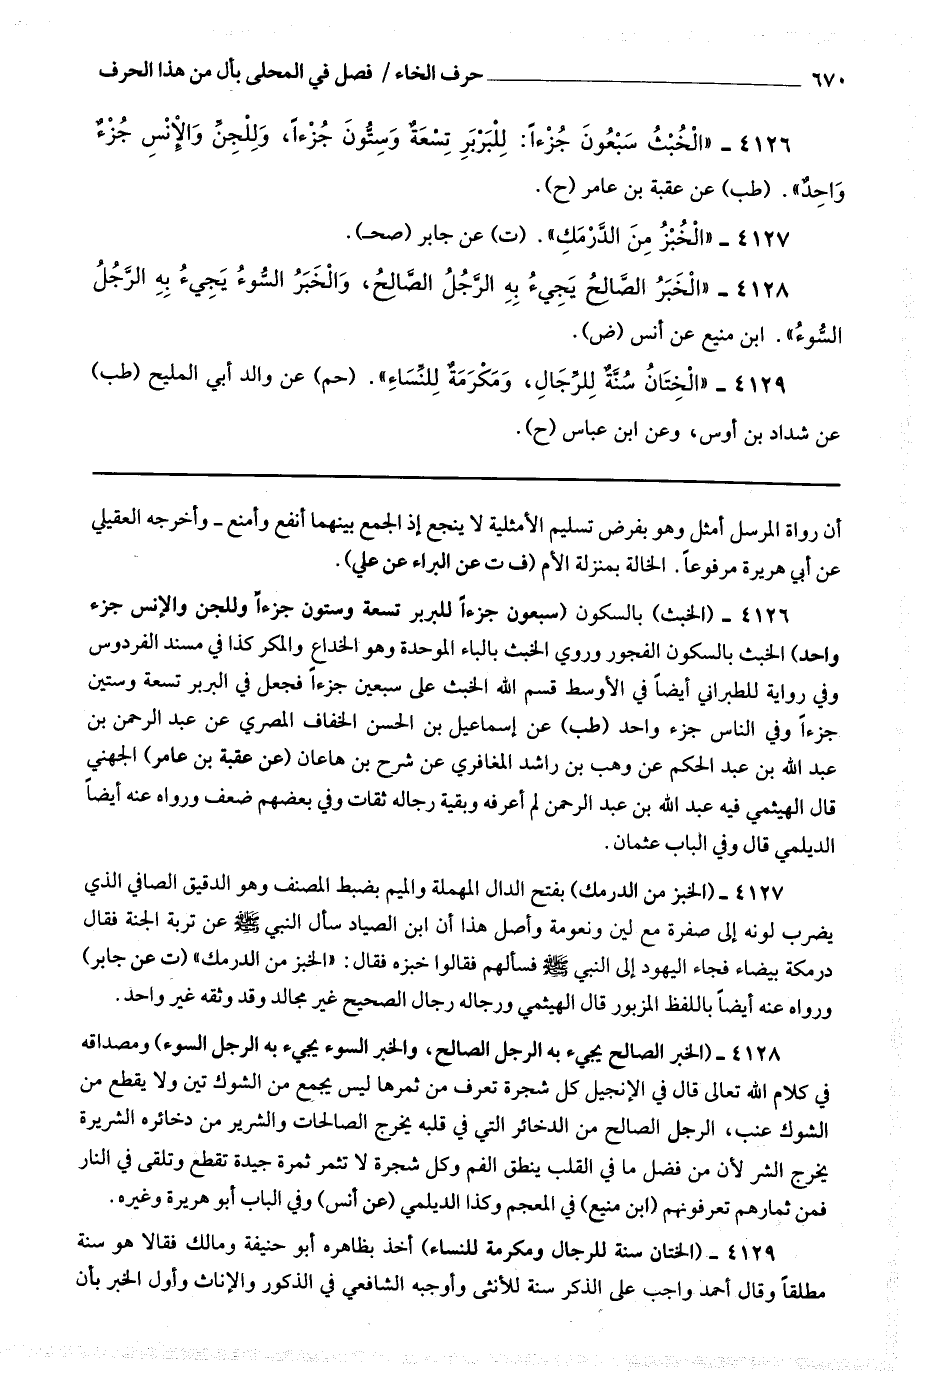 ٦٧٠ ــــــــــــ حرف الخاء / فصل في المحلى بأل من هذا الحرف
٤١٢٦ ـ «الْخُبْثُ سَبْعُونَ جُزْءاً: لِلْبَرْبَرِ تِسْعَةٌ وَسِتُّونَ جُزْءاً، وَلِلْجِنِّ وَالْإِنْسِ جُزْءٌ
وَاحِدٌ». (طب) عن عقبة بن عامر (ح).
٤١٢٧ ـ «الْخُبْزُ مِنَ الدَّرْمَكِ». (ت) عن جابر (صحـ).
٤١٢٨ ـ «الْخَبَرُ الصَّالِحُ يَجِيءُ بِهِ الرَّجُلُ الصَّالِحُ، وَالْخَبَرُ السُّوءُ يَجِيءُ بِهِ الرَّجُلُ
السُّوءُ». ابن منيع عن أنس (ض).
٤١٢٩ ـ «الْخِتَانُ سُنَّةٌ لِلرِّجَالِ، وَمَكْرَمَةٌ لِلنِّسَاءِ». (حم) عن والد أبي المليح (طب)
عن شداد بن أوس، وعن ابن عباس (ح).
أن رواة المرسل أمثل وهو بفرض تسليم الأمثلية لا ينجع إذ الجمع بينهما أنفع وأمنع ـ وأخرجه العقيلي
عن أبي هريرة مرفوعاً. الخالة بمنزلة الأم (ف ت عن البراء عن علي).
٤١٢٦ ـ (الخبث) بالسكون (سبعون جزءاً للبربر تسعة وستون جزءاً وللجن والإنس جزء
واحد) الخبث بالسكون الفجور وروي الخبث بالباء الموحدة وهو الخداع والمكر كذا في مسند الفردوس
وفي رواية للطبراني أيضاً في الأوسط قسم الله الخبث على سبعين جزءاً فجعل في البربر تسعة وستين
جزءاً وفي الناس جزء واحد (طب) عن إسماعيل بن الحسن الخفاف المصري عن عبد الرحمن بن
عبد الله بن عبد الحكم عن وهب بن راشد المغافري عن شرح بن هاعان (عن عقبة بن عامر) الجهني
قال الهيثمي فيه عبد الله بن عبد الرحمن لم أعرفه وبقية رجاله ثقات وفي بعضهم ضعف ورواه عنه أيضاً
الديلمي قال وفي الباب عثمان.
٤١٢٧ ـ (الخبز من الدرمك) بفتح الدال المهملة والميم بضبط المصنف وهو الدقيق الصافي الذي
يضرب لونه إلى صفرة مع لين ونعومة وأصل هذا أن ابن الصياد سأل النبي ﷺ عن تربة الجنة فقال
درمكة بيضاء فجاء اليهود إلى النبي ﷺ فسألهم فقالوا خبزه فقال: «الخبز من الدرمك» (ت عن جابر)
ورواه عنه أيضاً باللفظ المزبور قال الهيثمي ورجاله رجال الصحيح غير مجالد وقد وثقه غير واحد.
٤١٢٨ ـ (الخبر الصالح يجيء به الرجل الصالح، والخبر السوء يجيء به الرجل السوء) ومصداقه
في كلام الله تعالى قال في الإنجيل كل شجرة تعرف من ثمرها ليس يجمع من الشوك تين ولا يقطع من
الشوك عنب، الرجل الصالح من الذخائر التي في قلبه يخرج الصالحات والشرير من دخائره الشريرة
يخرج الشر لأن من فضل ما في القلب ينطق الفم وكل شجرة لا تثمر ثمرة جيدة تقطع وتلقى في النار
فمن ثمارهم تعرفونهم (ابن منيع) في المعجم وكذا الديلمي (عن أنس) وفي الباب أبو هريرة وغيره.
٤١٢٩ ـ (الختان سنة للرجال ومكرمة للنساء) أخذ بظاهره أبو حنيفة ومالك فقالا هو سنة
مطلقاً وقال أحمد واجب على الذكر سنة للأنثى وأوجبه الشافعي في الذكور والإناث وأول الخبر بأن